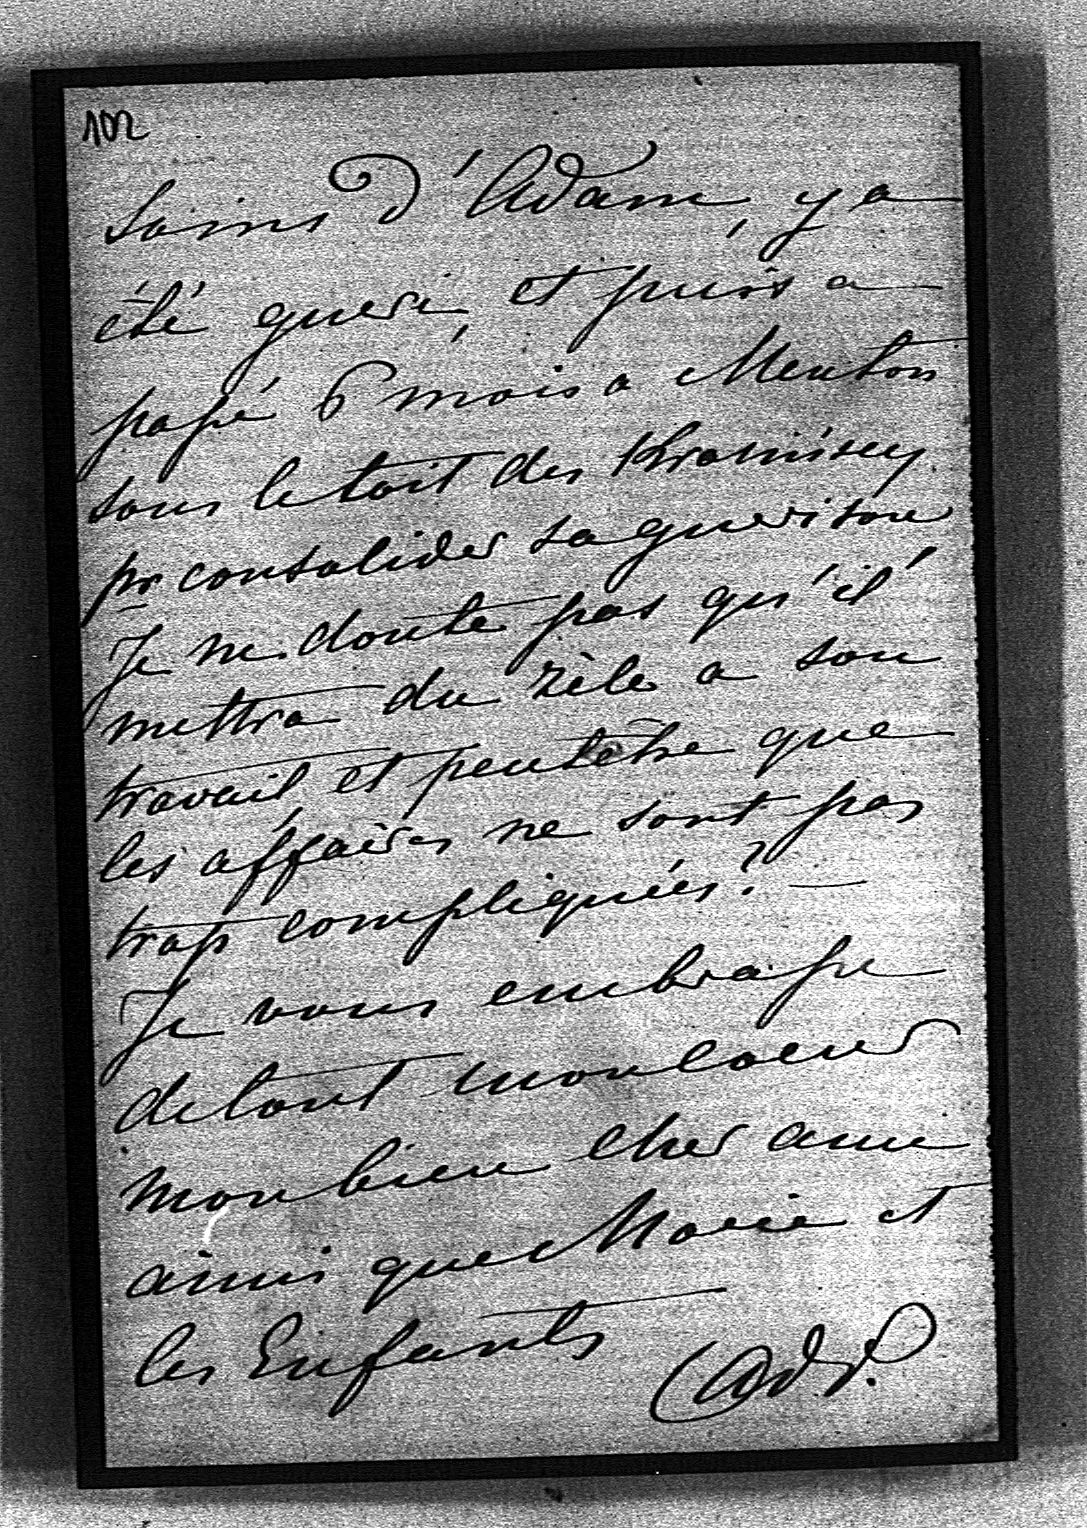 102
soins d'Adam, y a
été gueri, et puis a
passé 6 mois a Menton
sous le toit des
pr consolider sa guerison
Je ne doute pas qu'il
mettra du zèle a son
travail et peutêtre que
les affaires ne sont pas
trop compliquées? —
Je vous embrasse
de tout mon coeur
mon bien cher ami
ainsi que Marie et
les Enfants